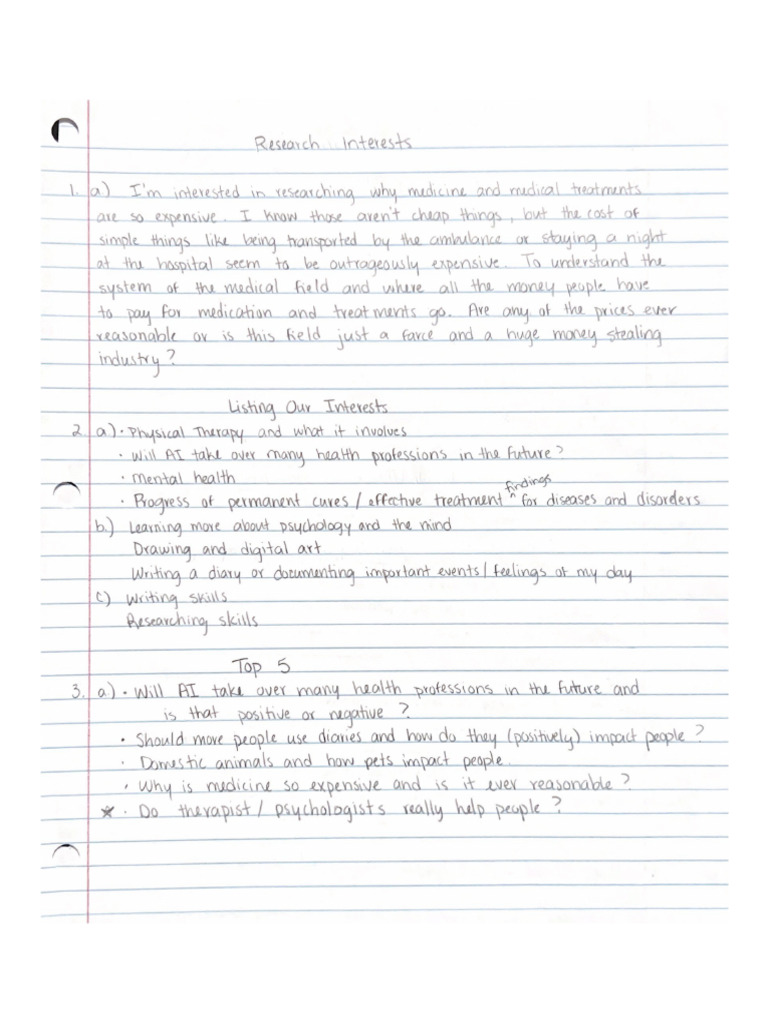 Research Interests
1. a) I'm interested in researching why medicine and medical treatments
are so expensive. I know those aren't cheap things, but the cost of
simple things like being transported by the ambulance or staying a night
at the hospital seem to be outrageously expensive. To understand the
system of the medical field and where all the money people have
to pay for medication and treatments go. Are any of the prices ever
reasonable or is this field just a farce and a huge money stealing
industry?
Listing Our Interests
2. a.) • Physical Therapy and what it involves
• Will AI take over many health professions in the future?
• Mental health
findings
• Progress of permanent cures / effective treatment ^ for diseases and disorders
b.) Learning more about psychology and the mind
Drawing and digital art
Writing a diary or documenting important events / feelings of my day
c) Writing skills
Researching skills
Top 5
3. a.) • Will AI take over many health professions in the future and
is that positive or negative?
• Should more people use diaries and how do they (positively) impact people?
• Domestic animals and how pets impact people.
• Why is medicine so expensive and is it ever reasonable?
★ • Do therapist / psychologists really help people?